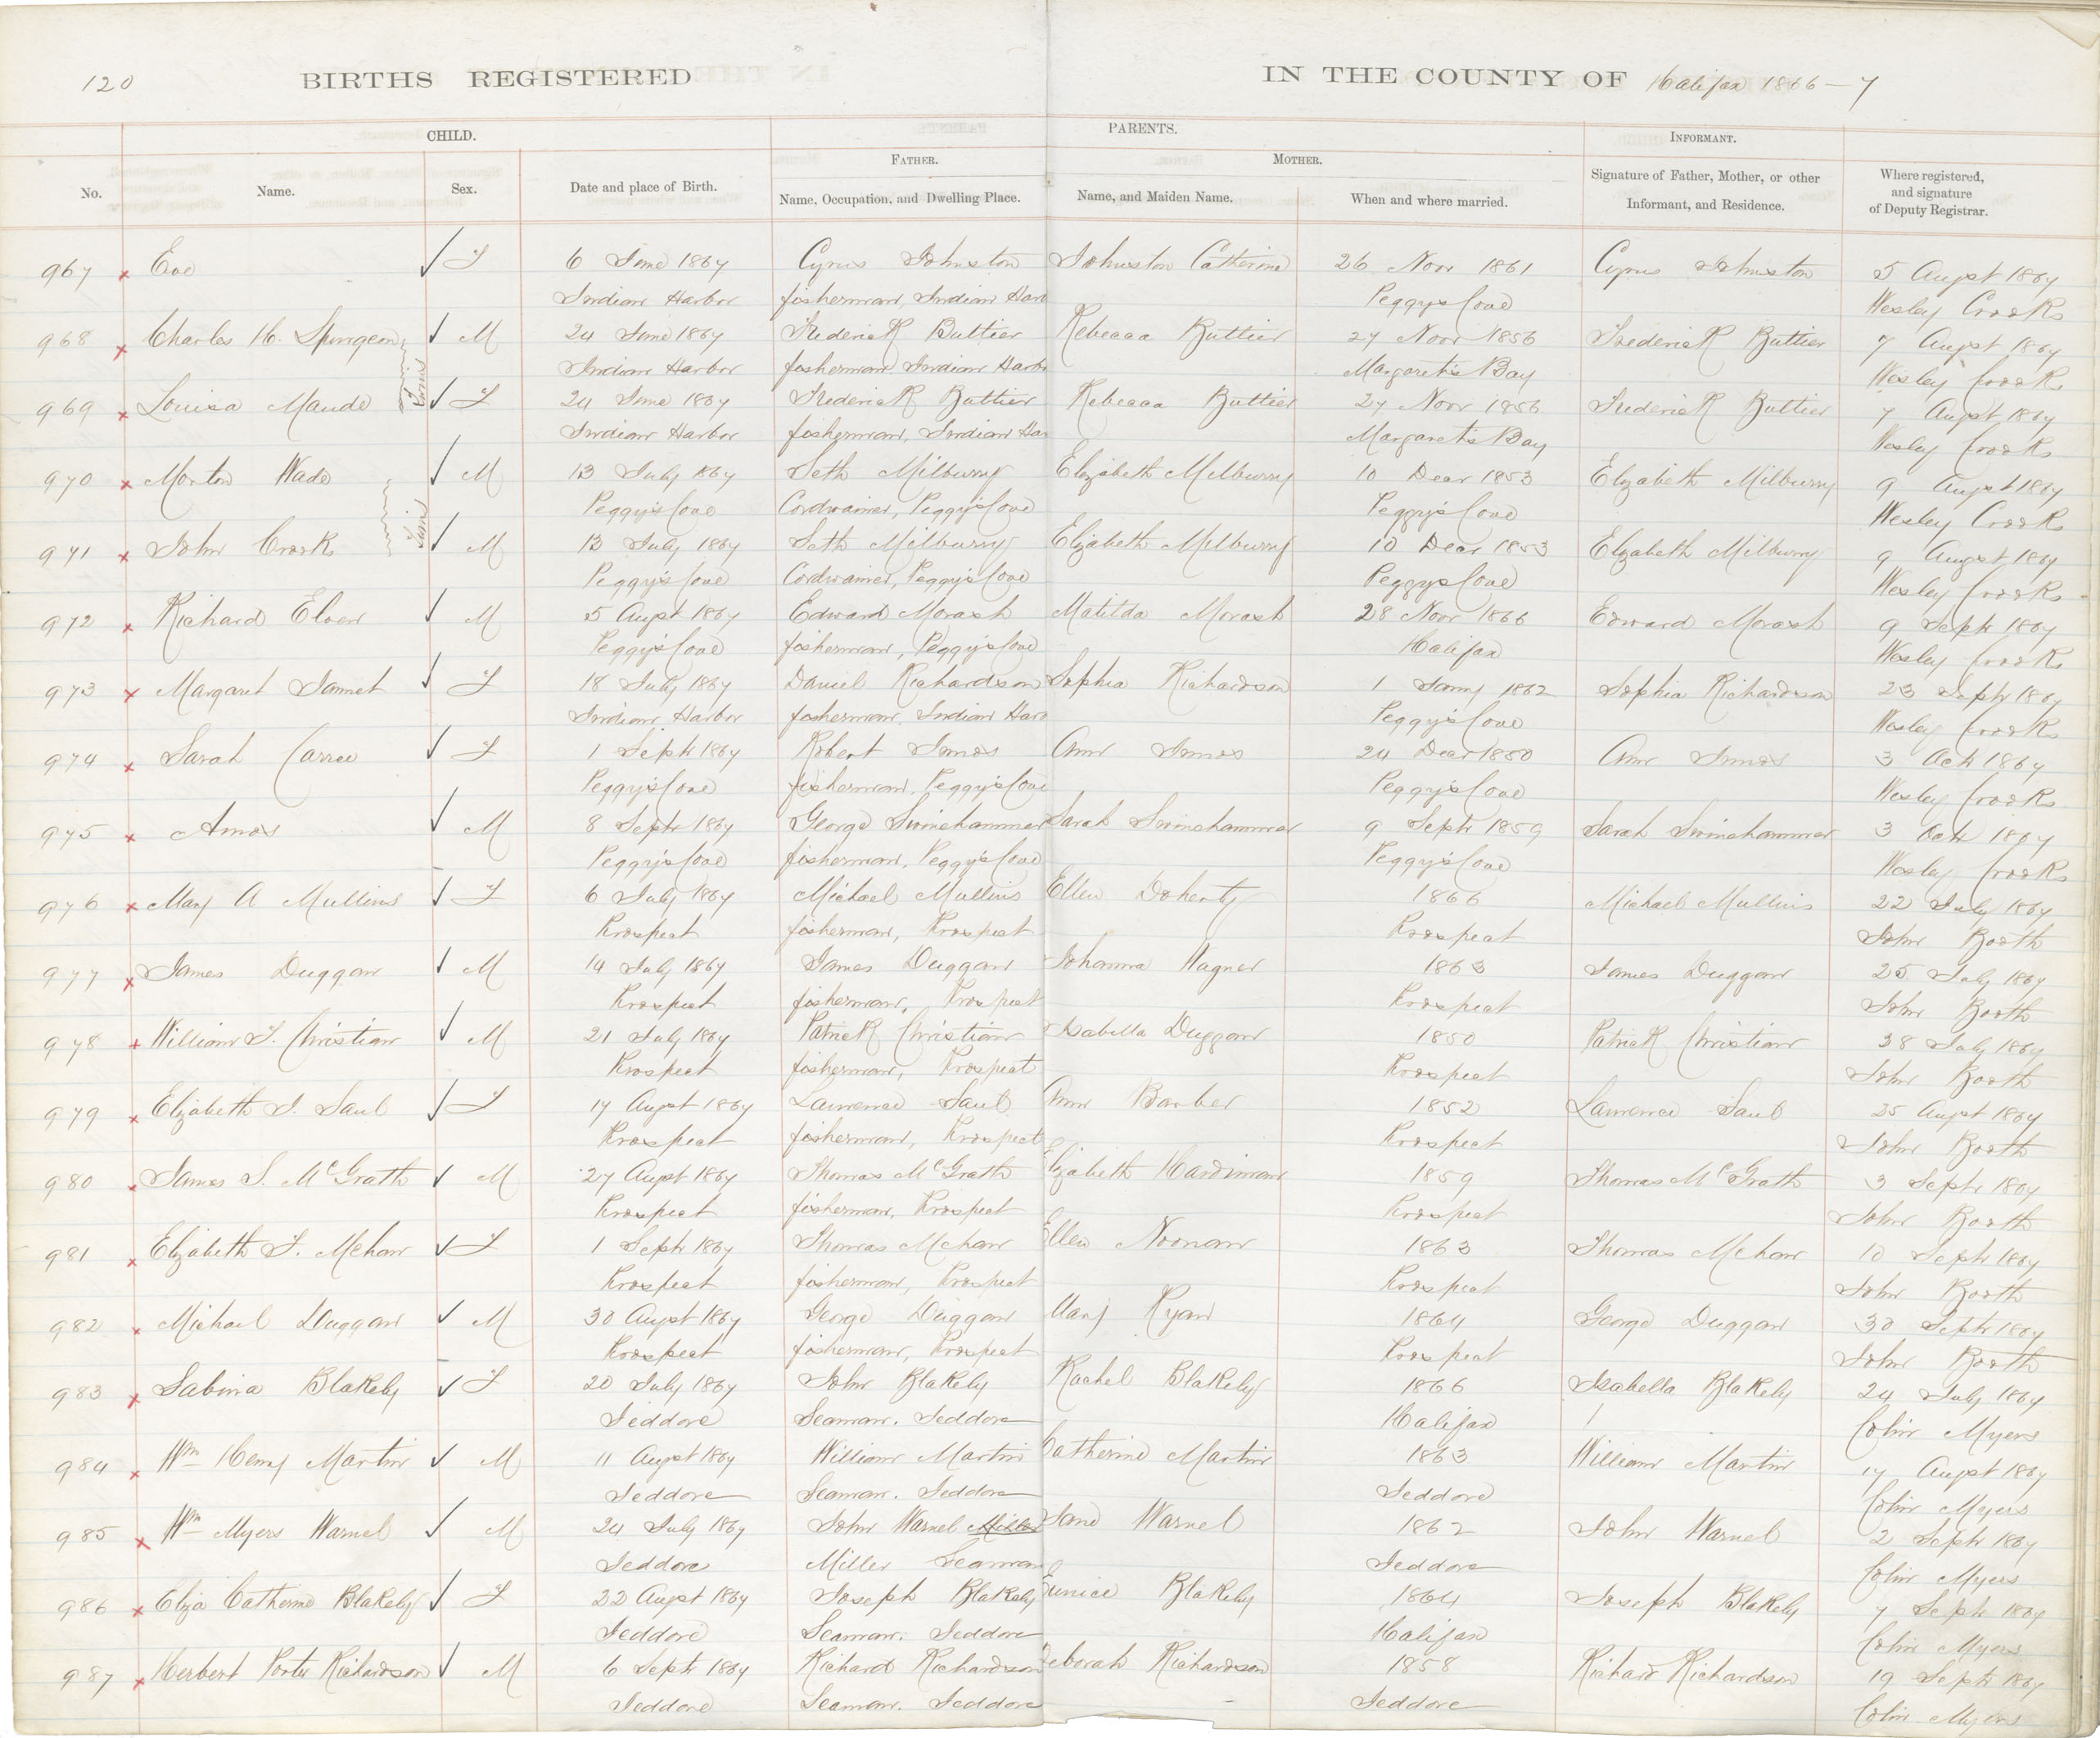 120 BIRTHS REGISTERED IN THE COUNTY OF Halifax 1866-7
CHILD. PARENTS. INFORMANT.
FATHER. MOTHER.
No. Name. Sex. Date and place of Birth. Name, Occupation, and Dwelling Place. Name, and Maiden Name. When and where married. Signature of Father, Mother, or other Informant, and Residence. Where registered, and signature of Deputy Registrar.
967 Eve F 6 June 1867 Cyrus Johnston Johnston Catherine 26 Novr 1861 Cyrus Johnston 5 Augst 1867
Indian Harbor fisherman, Indian Harb Peggy's Cove Wesley Crooks
968 Charles H. Spurgeon M 24 June 1867 Frederick Buttier Rebecca Buttier 27 Novr 1856 Frederick Buttier 7 Augst 1867
Twins
Indian Harbor fisherman, Indian Harbr Margaret's Bay Wesley Crooks
969 Louisa Maude F 24 June 1867 Frederick Buttier Rebecca Buttier 27 Novr 1856 Frederick Buttier 7 Augst 1867
Indian Harbor fisherman, Indian Har Margaret's Bay Wesley Crooks
970 Morton Wade M 13 July 1867 Seth Milburry Elizabeth Milburry 10 Decr 1853 Elizabeth Milburry 9 Augst 1867
Twins
Peggy's Cove Cordwainer, Peggy's Cove Peggy's Cove Wesley Crooks
971 John Crooks M 13 July 1867 Seth Milburry Elizabeth Milburry 10 Decr 1853 Elizabeth Milburry 9 Augst 1867
Peggy's Cove Cordwainer, Peggy's Cove Peggy's Cove Wesley Crooks
972 Richard Elver M 5 Augst 1867 Edward Morash Matilda Morash 28 Novr 1866 Edward Morash 9 Septr 1867
Peggy's Cove fisherman, Peggy's Cove Halifax Wesley Crooks
973 Margaret Jannet F 18 July 1867 Daniel Richardson Sophia Richardson 1 Jany 1862 Sophia Richardson 23 Septr 1867
Indian Harbor fisherman, Indian Harb Peggy's Cove Wesley Crooks
974 Sarah Carree F 1 Septr 1867 Robert Innes Ann Innes 24 Decr 1850 Ann Innes 3 Octr 1867
Peggy's Cove fisherman, Peggy's Cove Peggy's Cove Wesley Crooks
975 Amos M 8 Septr 1867 George Swinehammer Sarah Swinehammer 9 Septr 1859 Sarah Swinehammer 3 Octr 1867
Peggy's Cove fisherman, Peggy's Cove Peggy's Cove Wesley Crooks
976 Mary A Mullins F 6 July 1867 Michael Mullins Ellen Doherty 1866 Michael Mullins 22 July 1867
Prospect fisherman, Prospect Prospect John Booth
977 James Duggan M 14 July 1867 James Duggan Johanna Wagner 1863 James Duggan 25 July 1867
Prospect fisherman, Prospect Prospect John Booth
978 William F. Christian M 21 July 1867 Patrick Christian Isabella Duggan 1850 Patrick Christian 38 July 1867
Prospect fisherman, Prospect Prospect John Booth
979 Elizabeth J. Saul F 17 Augst 1867 Lawrence Saul Ann Barber 1852 Lawrence Saul 25 Augst 1867
Prospect fisherman, Prospect Prospect John Booth
980 James S. McGrath M 27 Augst 1867 Thomas McGrath Elizabeth Hardiman 1859 Thomas McGrath 3 Septr 1867
Prospect fisherman, Prospect Prospect John Booth
981 Elizabeth F. Mehan F 1 Septr 1867 Thomas Mehan Ellen Noonan 1863 Thomas Mehan 10 Septr 1867
Prospect fisherman, Prospect Prospect John Booth
982 Michael Duggan M 30 Augst 1867 George Duggan Mary Ryan 1864 George Duggan 30 Septr 1867
Prospect fisherman, Prospect Prospect John Booth
983 Sabina Blakely F 20 July 1867 John Blakely Rachel Blakely 1866 Isabella Blakely 24 July 1867
Jeddore Seaman. Jeddore Halifax Colin Myers
984 Wm Henry Martin M 11 Augst 1867 William Martin Catherine Martin 1863 William Martin 17 Augst 1867
Jeddore Seaman. Jeddore Jeddore Colin Myers
985 Wm Myers Warnel M 24 July 1867 John Warnel Miller Jane Warnel 1862 John Warnel 2 Septr 1867
Jeddore Miller Seaman Jeddore Colin Myers
986 Eliza Catherine Blakely F 22 Augst 1867 Joseph Blakely Eunice Blakely 1864 Joseph Blakely 7 Septr 1867
Jeddore Seaman. Jeddore Halifax Colin Myers
987 Herbert Porter Richardson M 6 Septr 1867 Richard Richardson Deborah Richardson 1858 Richard Richardson 19 Septr 1867
Jeddore Seaman. Jeddore Jeddore Colin Myers